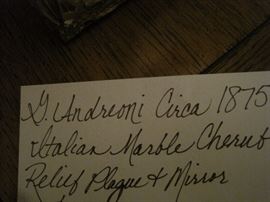 G. Andreoni Circa 1875
Italian Marble Cherub
Relief Plaque & Mirror